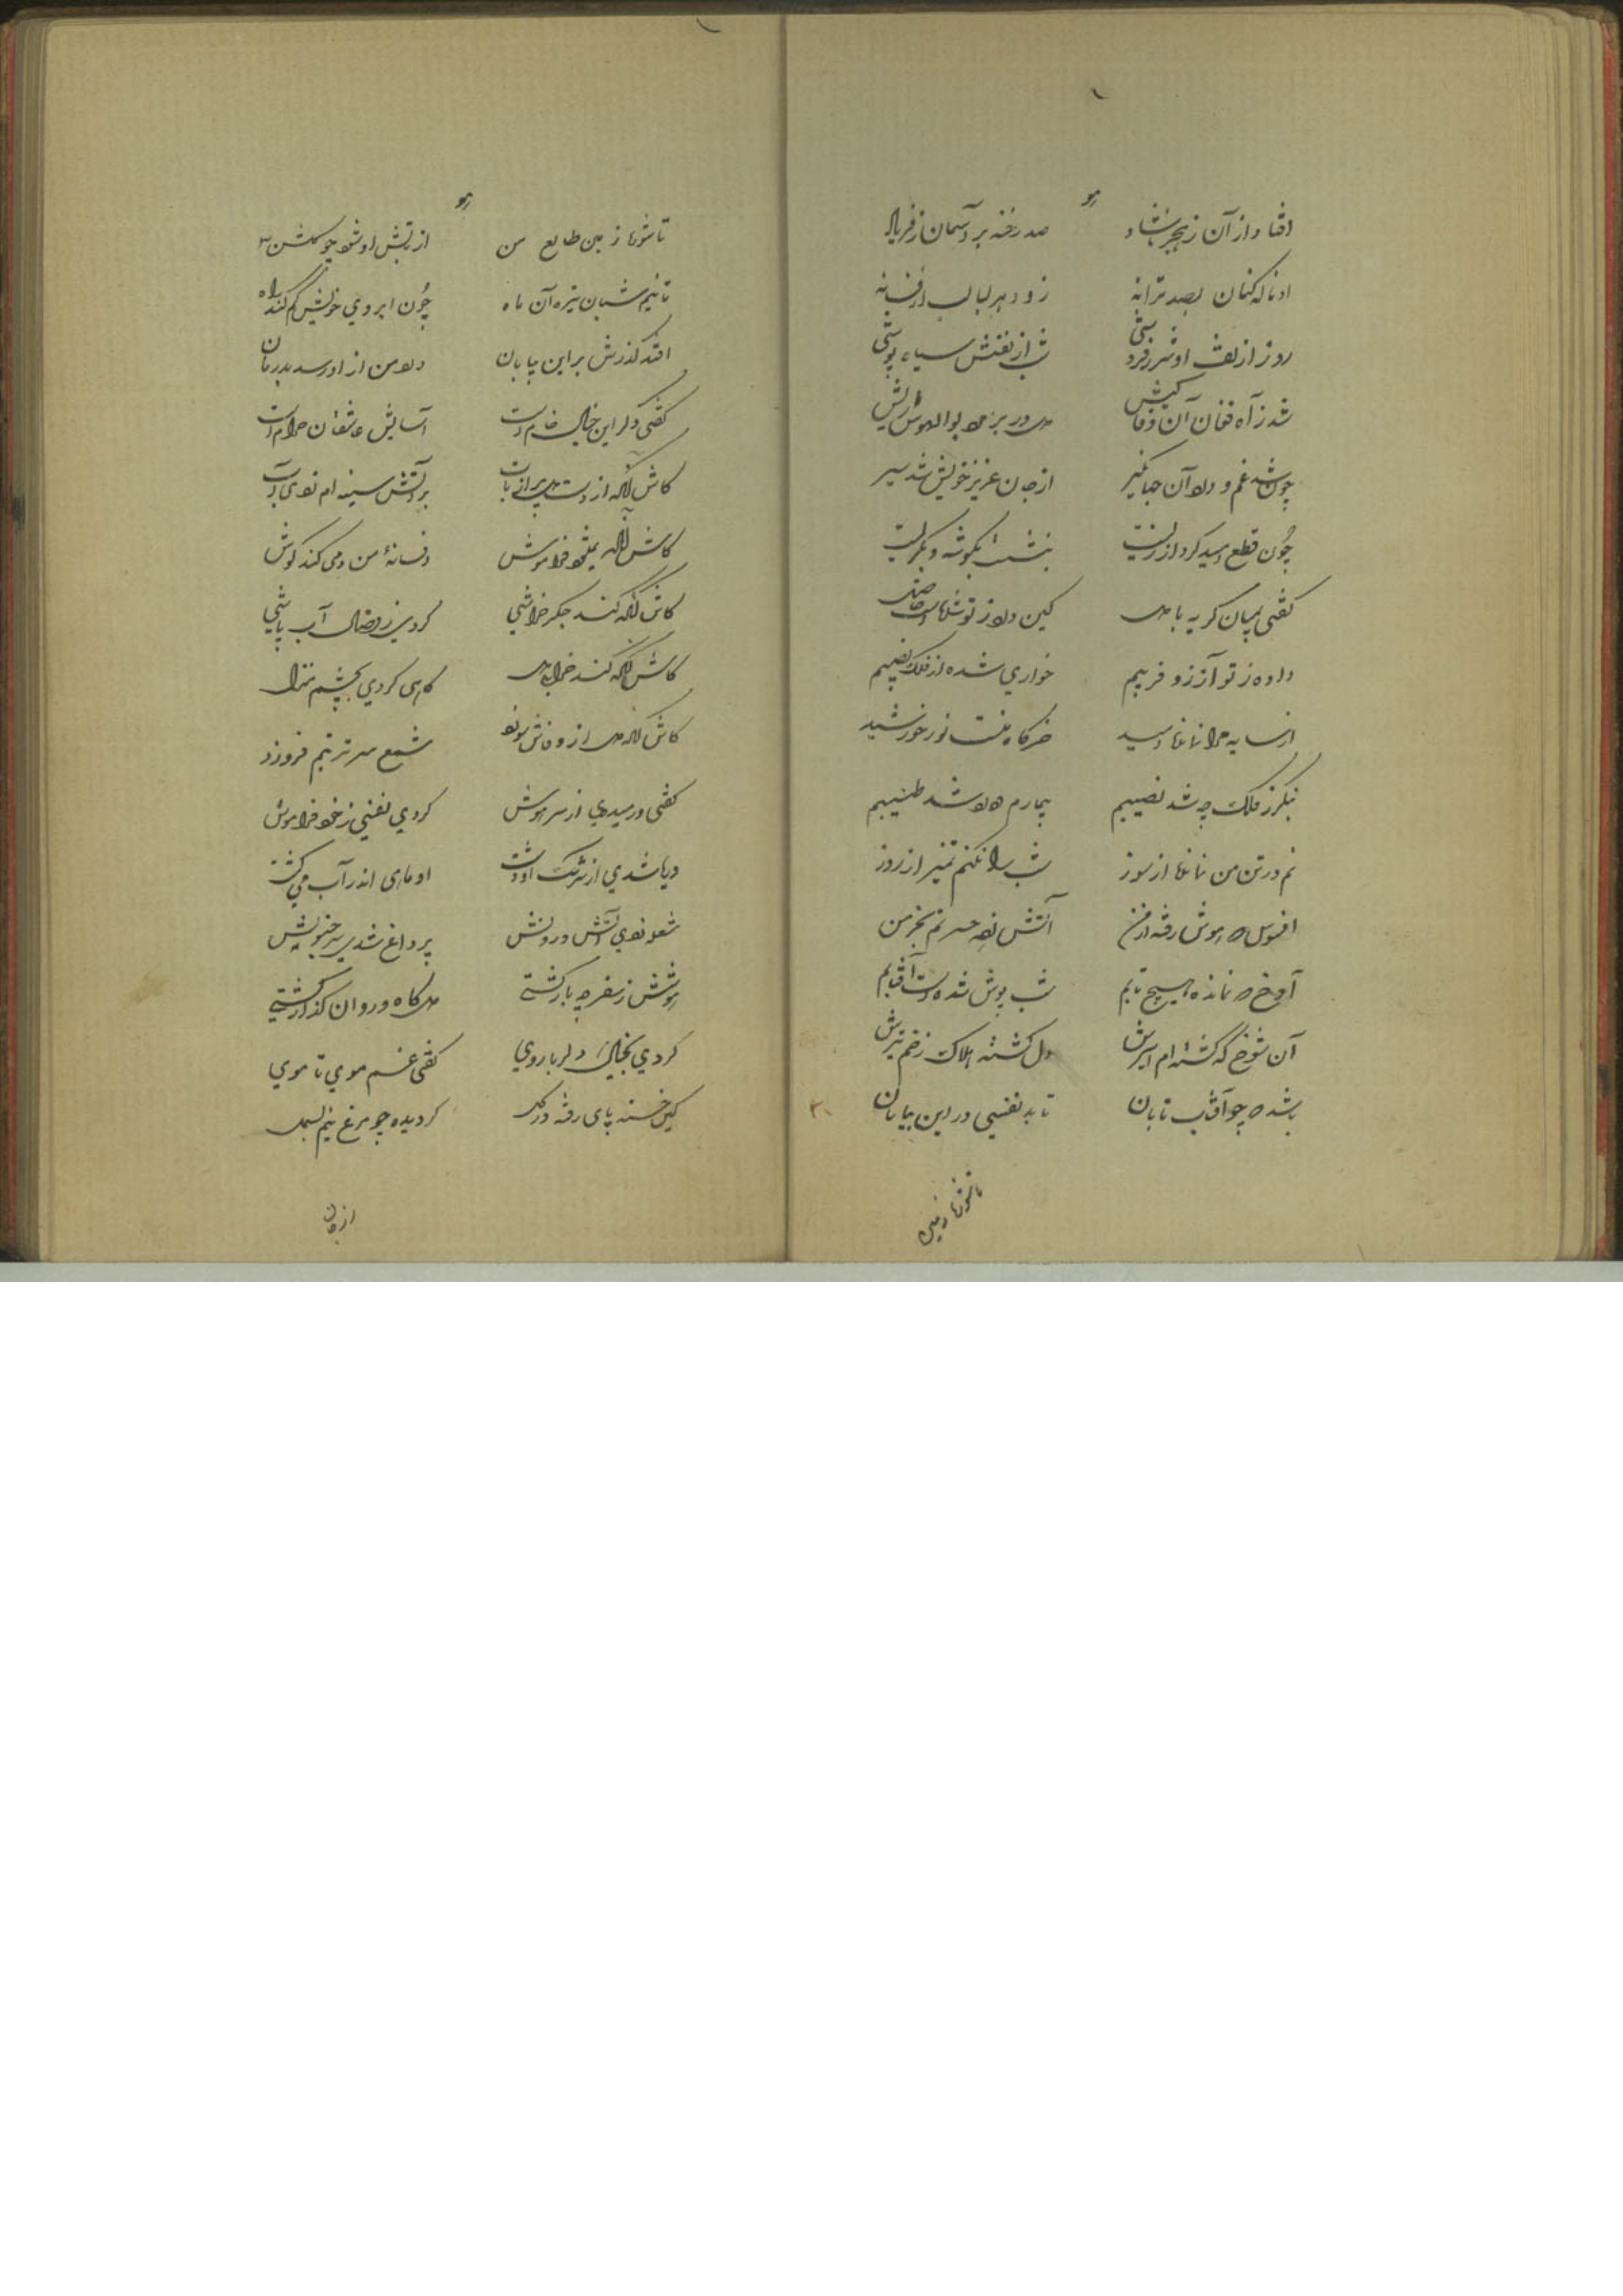 هو
افتاد از آن زهجر ناشاد صد رخنه بر آسمان ز فریاد
او ناله کنان بصد ترانه زو دهر لبالب از فسانه
روز از تف او شرر فروشی شب از نفسش سیاه پوشی
شد ز آه فغان آن وفا کیش دل در بر
چون شد غم و درد آن جهانگیر از جان عزیز خویش شد سیر
چون قطع امید کرد از زیست بنشست بگوشه و بگریست
گفتی بمیان گریه با دل کین درد ز تو شد مرا حاصل
داده ز تو آرزو فریبم خواری شده از فلک نصیبم
از سایه مرا نماند امید خرگاه منست نور خورشید
بنگر ز فلک چه شد نصیبم بیمارم و درد شد طبیبم
نم در تن من نماند از سوز شب را نکنم تمیز از روز
افسوس که هوش رفته از من آتش زده حسرتم بخرمن
آوخ که نمانده هیچ تابم شب پوش شده است آفتابم
آن شوخ که گشته ام اسیرش دل گشته هلاک زخم تیرش
باشد که چو آفتاب تابان تابد نفسی در این بیابان
تا شوید از جبین
هو
تا شوید از جبین طالع من از تپش او شود چو گلشن
تا نیم شبان تیره آن ماه چون ابروی خویش کم کند راه
افتد گذرش بر این بیابان درد من از او رسد بدرمان
گفتی دگر این خیال خام است آسایش عاشقان حرام است
کاش آنکه از دست بر آتش سینه ام زدی آب
کاش آنکه نمیشود فراموش افسانهٔ من دمی کند گوش
کاش آنکه کند جگر خراشی کردی ز وصال آب پاشی
کاش آنکه کند خراب دل گاهی کردی بچشم منزل
کاش آنکه دل از وفاش سوزد شمع سر تربتم فروزد
گفتی و رمیدی از سر هوش کردی نفسی ز خود فراموش
دریا شدی از سرشک او دشت او ماهی اندر آب می گشت
شعله زدی آتش درونش پر داغ شدی
هوشش ز سفر چو باز گشتی
کردی بخیال دلربا روی گفتی غم موی تا موی
کین خسته پای رفته در گل گردیده چو مرغ نیم بسمل
از جان